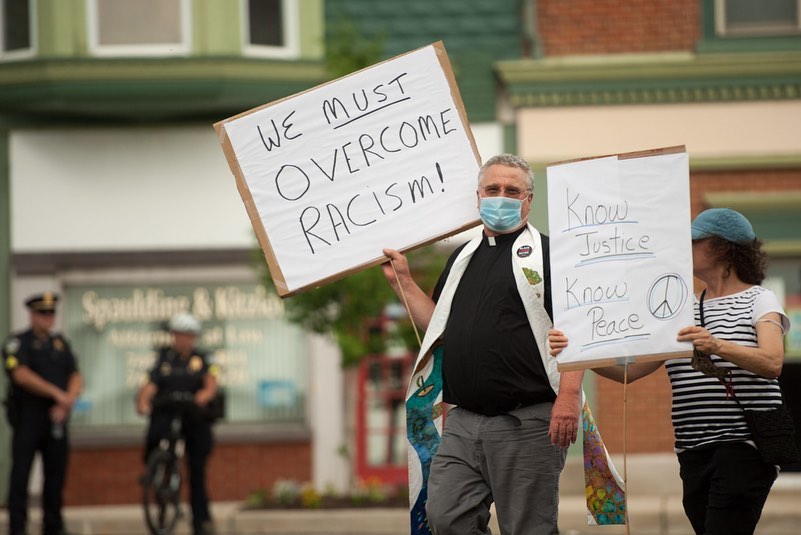 WE MUST
OVERCOME
RACISM!
Know
Justice
Know
Peace
Spaulding &
Attorneys at Law